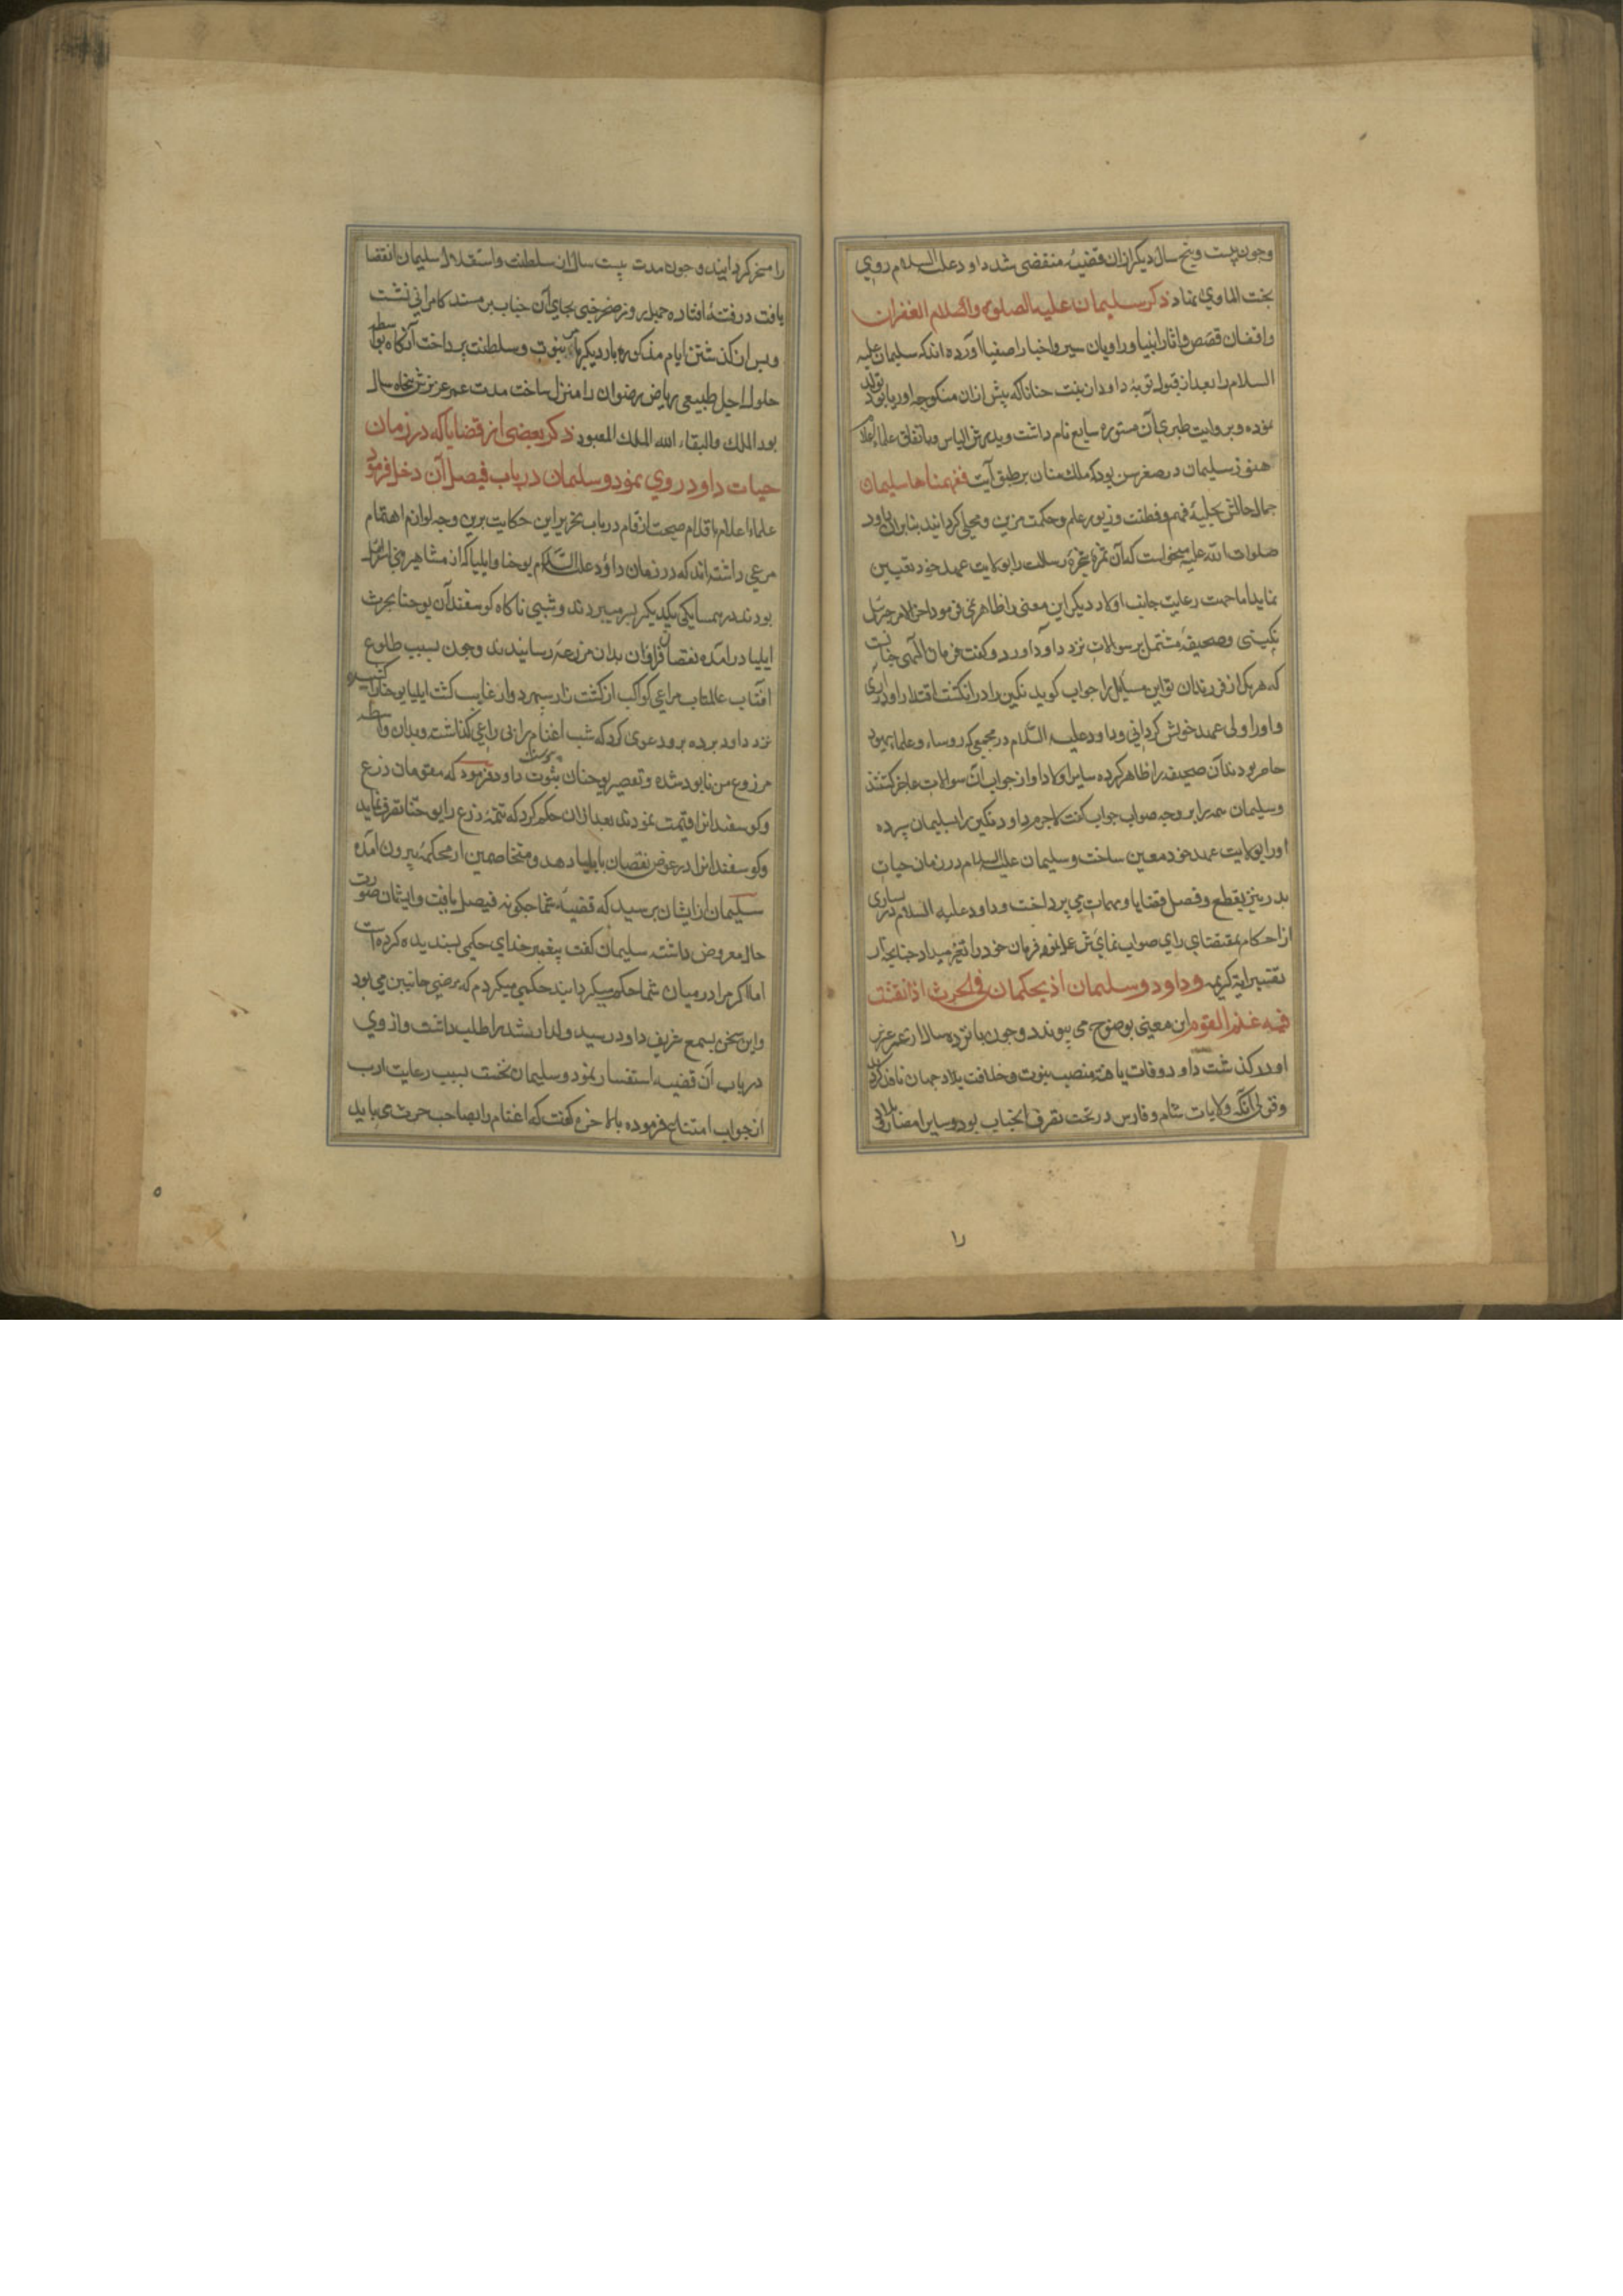 وچون بیست وپنج سال دیکر ازان قضیه منقضی شد داود علیه السلام روی
بجنت الماوی نهاد ذکر سلیمان علیه الصلوة والسلام الغفران
واقفان قصص واثار انبیا وراویان سیر واخبار اصفیا آورده اند که سلیمان علیه
السلام را بعد از قبول توبهٔ داود از بنت حنانا که پیش ازان منکوحه اوریا بود تولد
نموده وبروایت طبری آن مستوره سایع نام داشت وپدرش الیاس وباتفاق علماء اعلام
هنوز سلیمان در صغر سن بود که ملک منان بر طبق آیت ففهمناها سلیمان
جمال حالش بحلیهٔ فهم وفطنت وزیور علم وحکمت مزین ومحلی کردانید بنابران داود
صلوات الله علیه میخواست که آن ثمرهٔ شجرهٔ رسالت را بولایت عهد خود تعیین
نماید اما جهت رعایت جانب اولاد دیکر این معنی را ظاهر نمی فرمود اخر الامر جبرئیل
نکینی وصحیفهٔ مشتمل بر سوالات نزد داود آورد وکفت فرمان الهی چنانست
که هر یک از فرزندان تو این مسایل را جواب کوید نکین را در انکشت اقتدار او در آری
واورا ولی عهد خویش کردانی وداود علیه السلام در مجمعی که روساء وعلماء یهود
حاضر بودند آن صحیفه را ظاهر کرده سایر اولاد او از جواب آن سوالات عاجز کشتند
وسلیمان همه را بر وجه صواب جواب کفت لاجرم داود نکین را بسلیمان سپرده
اورا بولایت عهد خود معین ساخت وسلیمان علیه السلام در زمان حیات
پدر نیز بقطع وفصل قضایا ومهمات می پرداخت وداود علیه السلام در بسیاری
از احکام بمقتضای رای صواب نمای ش عمل نموده فرمان خود را تغیر میداد چنانچه از
تفسیر ایهٔ کریمه وداود وسلیمان اذ یحکمان فی الحرث اذ نفشت
فیه غنم القوم این معنی بوضوح می پیوندد وچون پانزده سال از عمر عزیز
او در کذشت داود وفات یافته منصب نبوت وخلافت بلاد جهان نافذ کردید
وقولی آنکه ولایات شام وفارس در تحت تصرف آنجناب بود وسایر امصار آفاق
را
را مسخر کردانید وچون مدت بیست سال از سلطنت واستقلال سلیمان انقضا
یافت در فتنهٔ افتاده چهل روز صخر جنی بجای آن جناب بر مسند کامرانی نشست
وپس از کذشتن ایام مذکوره بار دیکر بامر نبوت وسلطنت پرداخت آنکاه بواسطه
حلول اجل طبیعی ریاض رضوان را منزل ساخت مدت عمر عزیزش پنجاه سال
بود الملک والبقاء لله الملک المعبود ذکر بعضی از قضایا که در زمان
حیات داود روی نمود وسلیمان در باب فیصل آن دخل فرمود
علماء اعلام باقلام صحت ارقام در باب تحریر این حکایت برین وجه لوازم اهتمام
مرعی داشته اند که در زمان داؤد علیه السلام یوحنا وایلیا که از مشاهیر بنی اسرائیل
بودند در همسایکی یکدیکر بسر میبردند وشبی ناکاه کوسفندان یوحنا بحرث
ایلیا درآمده نقصان فراوان بدان مزرعه رسانیدند وچون بسبب طلوع
افتاب عالمتاب مراعی کواکب از کشت زار سپهر دوار غایب کشت ایلیا یوحنا را کشیده
نزد داود برده برو دعوی کرد که شب اغنام را بی راعی کذاشته وبدان واسطه
مزروع من نابود شده وتقصیر یوحنان بثبوت پیوست داود فرمود که مقومان زرع
وکوسفندانرا قیمت نمودند بعد ازان حکم کرد که تتمهٔ زرع را یوحنا تصرف نماید
وکوسفندانرا در عوض نقصان بایلیا دهد ومتخاصمین از محکمه بیرون آمده
سلیمان از ایشان پرسید که قضیهٔ شما چکونه فیصل یافت وایشان صورت
حال معروض داشته سلیمان کفت پیغمبر خدای حکمی پسندیده کرده است
اما اکر مرا در میان شما حکم میکردانید حکمی میکردم که مرضی جانبین می بود
واین سخن بسمع شریف داود رسید ولد ارشد را طلب داشت واز وی
در باب آن قضیه استفسار نمود وسلیمان نخست بسبب رعایت ادب
از جواب امتناع فرموده بالاخره کفت که اغنام را بصاحب حرث می باید